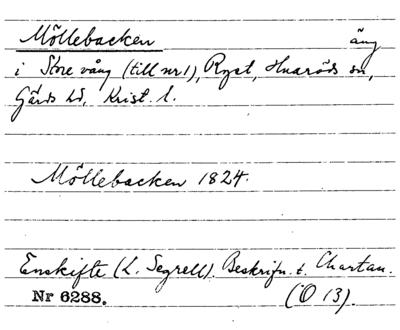 Möllebacken äng
i Store vång (till nr 1), Ryet, Huaröds sn,
Gärds hd, Krist. l.
Möllebacken 1824.
Enskifte (L. Segrell). Beskrifn. t. Chartan.
Nr 6288. (Ö 13).